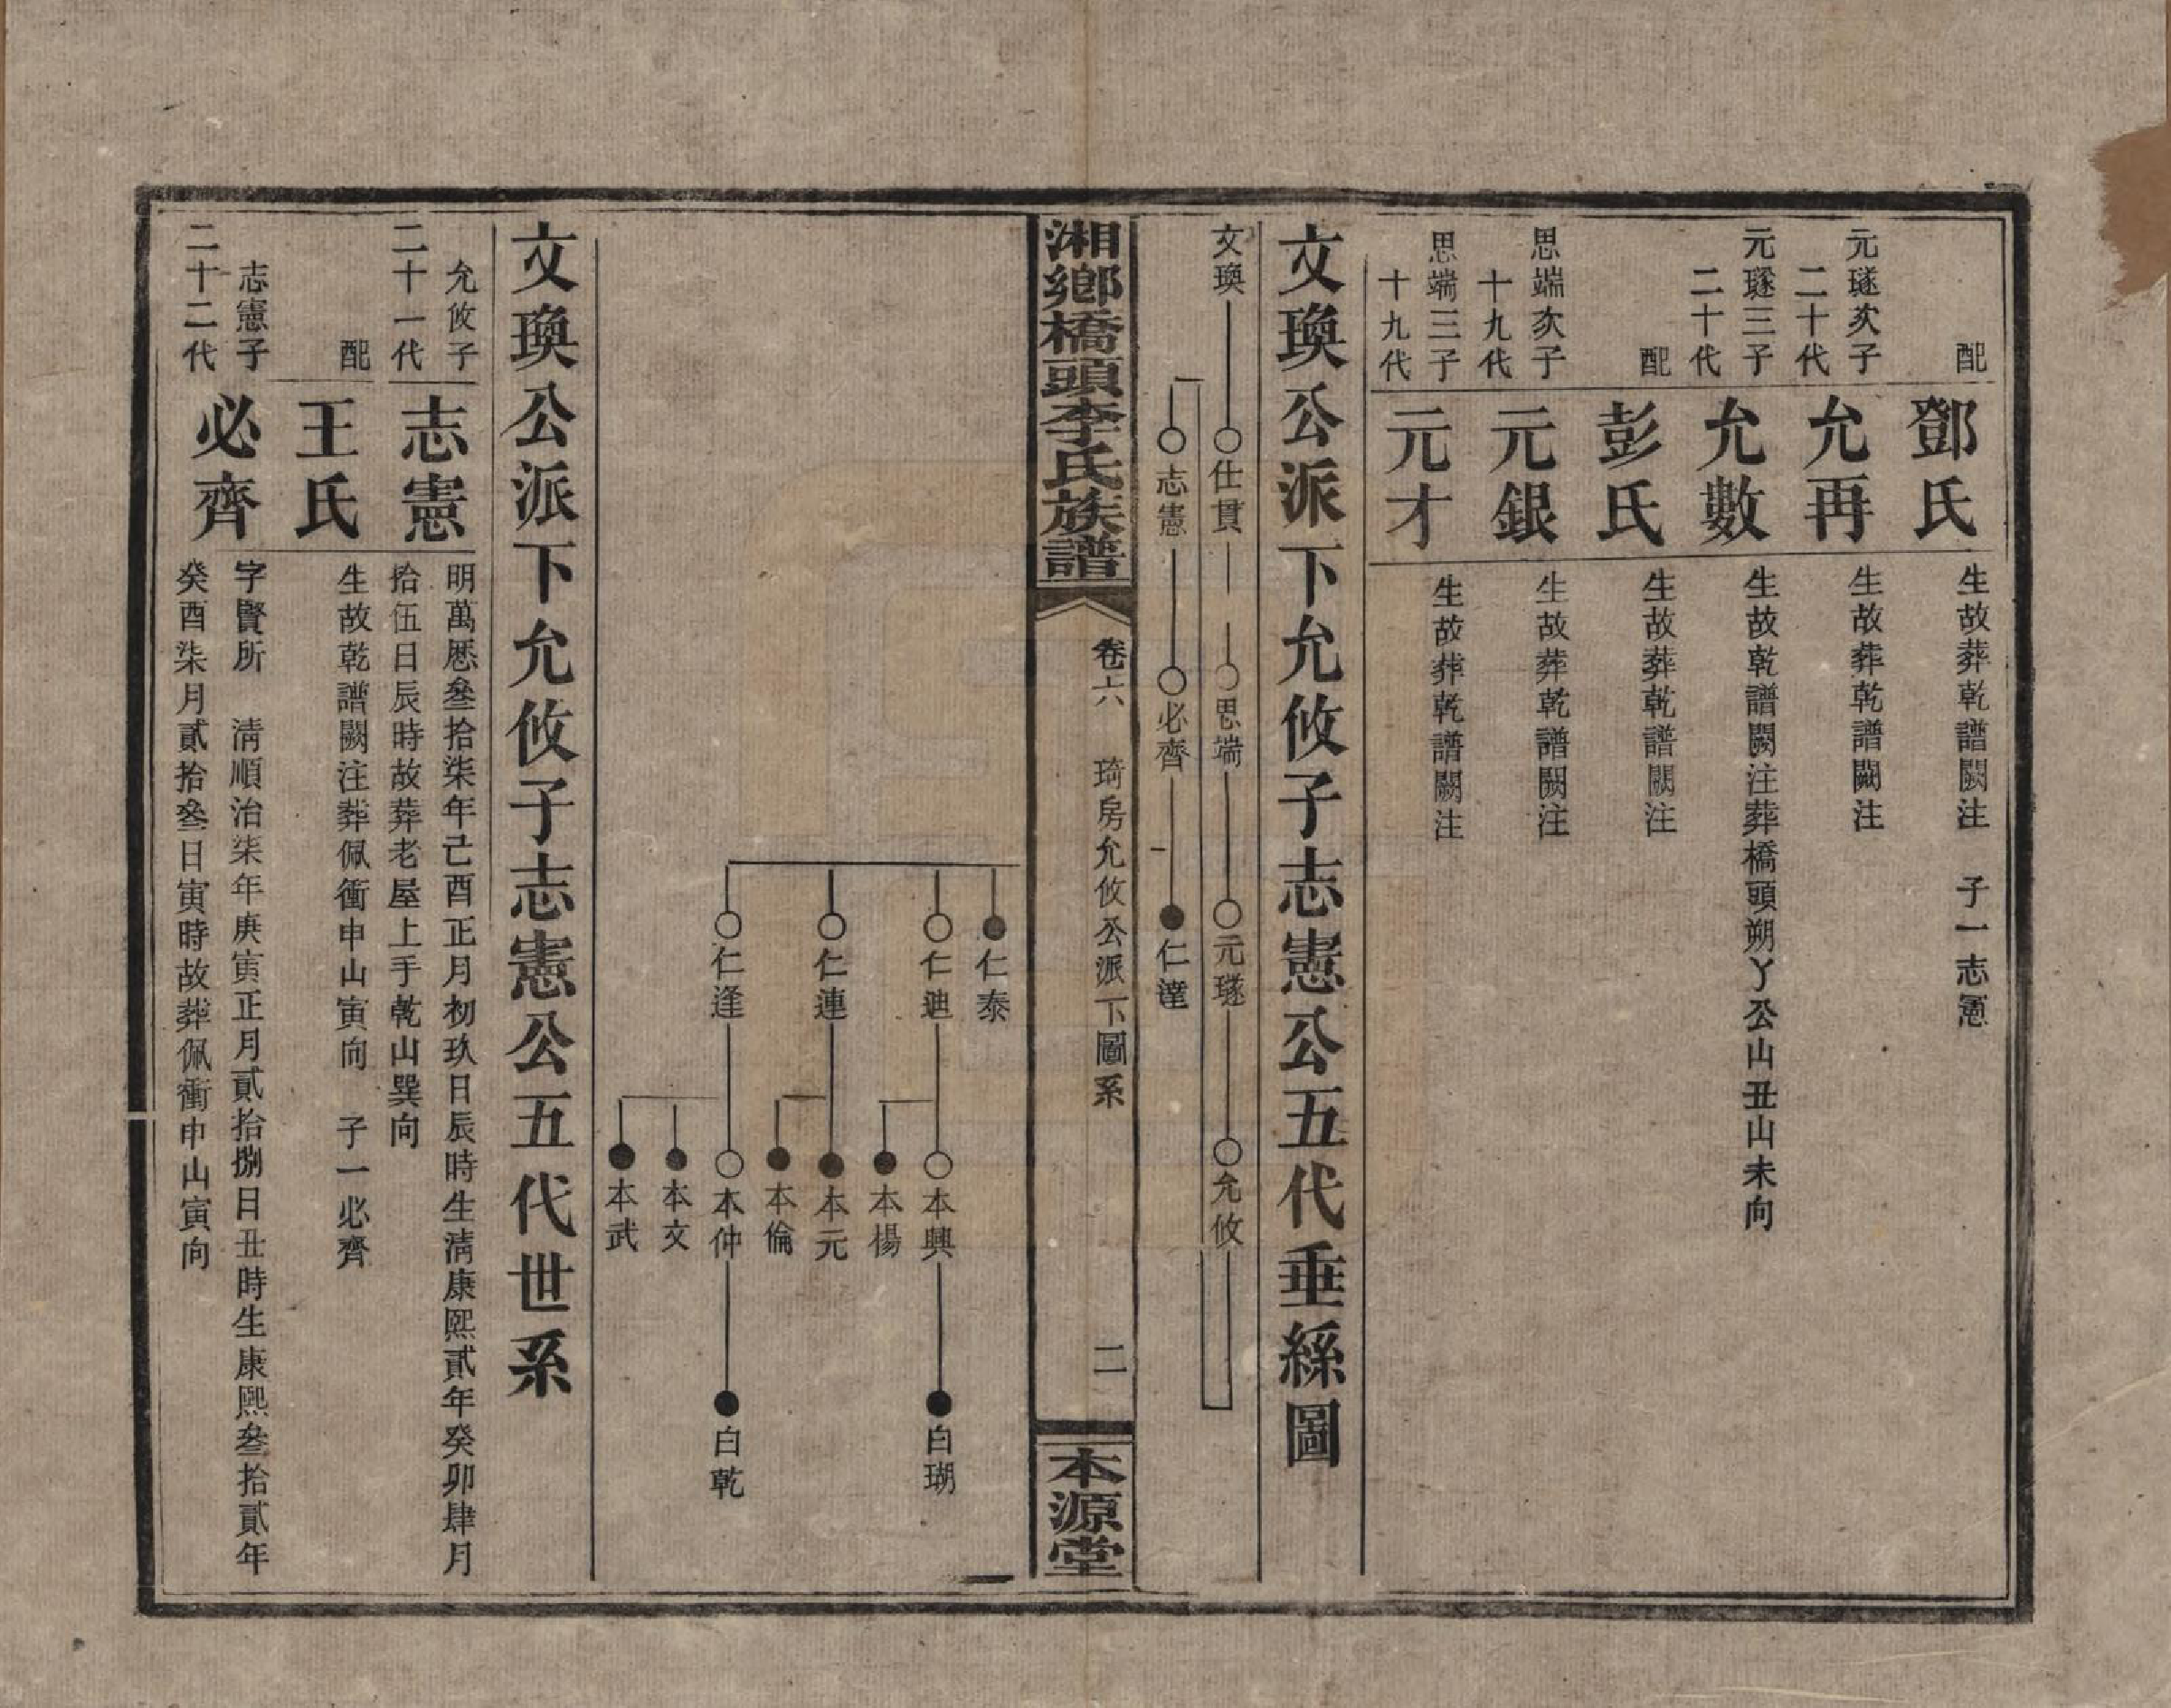 配
鄧氏
生故葬乾譜闕注　子一志憲
元璲次子
二十代
允再
生故葬乾譜闕注
元璲三子
二十代
允數
生故乾譜闕注葬橋頭朔丫公山丑山未向
配
彭氏
生故葬乾譜闕注
思端次子
十九代
元銀
生故葬乾譜闕注
思端三子
十九代
元才
生故葬乾譜闕注
文瑍公派下允攸子志憲公五代垂絲圖
文瑍
仕貫
思端
元璲
允攸
志憲
必齊
仁達
湘鄉橋頭李氏族譜
卷六　琦房允攸公派下圖系
二
本源堂
仁泰
仁迪
本興
白瑚
本楊
仁連
本元
本倫
仁逢
本仲
白乾
本文
本武
文瑍公派下允攸子志憲公五代世系
允攸子
二十一代
志憲
明萬厯叄拾柒年己酉正月初玖日辰時生淸康熙貳年癸卯肆月
拾伍日辰時故葬老屋上手乾山巽向
配
王氏
生故乾譜闕注葬佩衝申山寅向　子一必齊
志憲子
二十二代
必齊
字賢所　淸順治柒年庚寅正月貳拾捌日丑時生康熙叄拾貳年
癸酉柒月貳拾叄日寅時故葬佩衝申山寅向